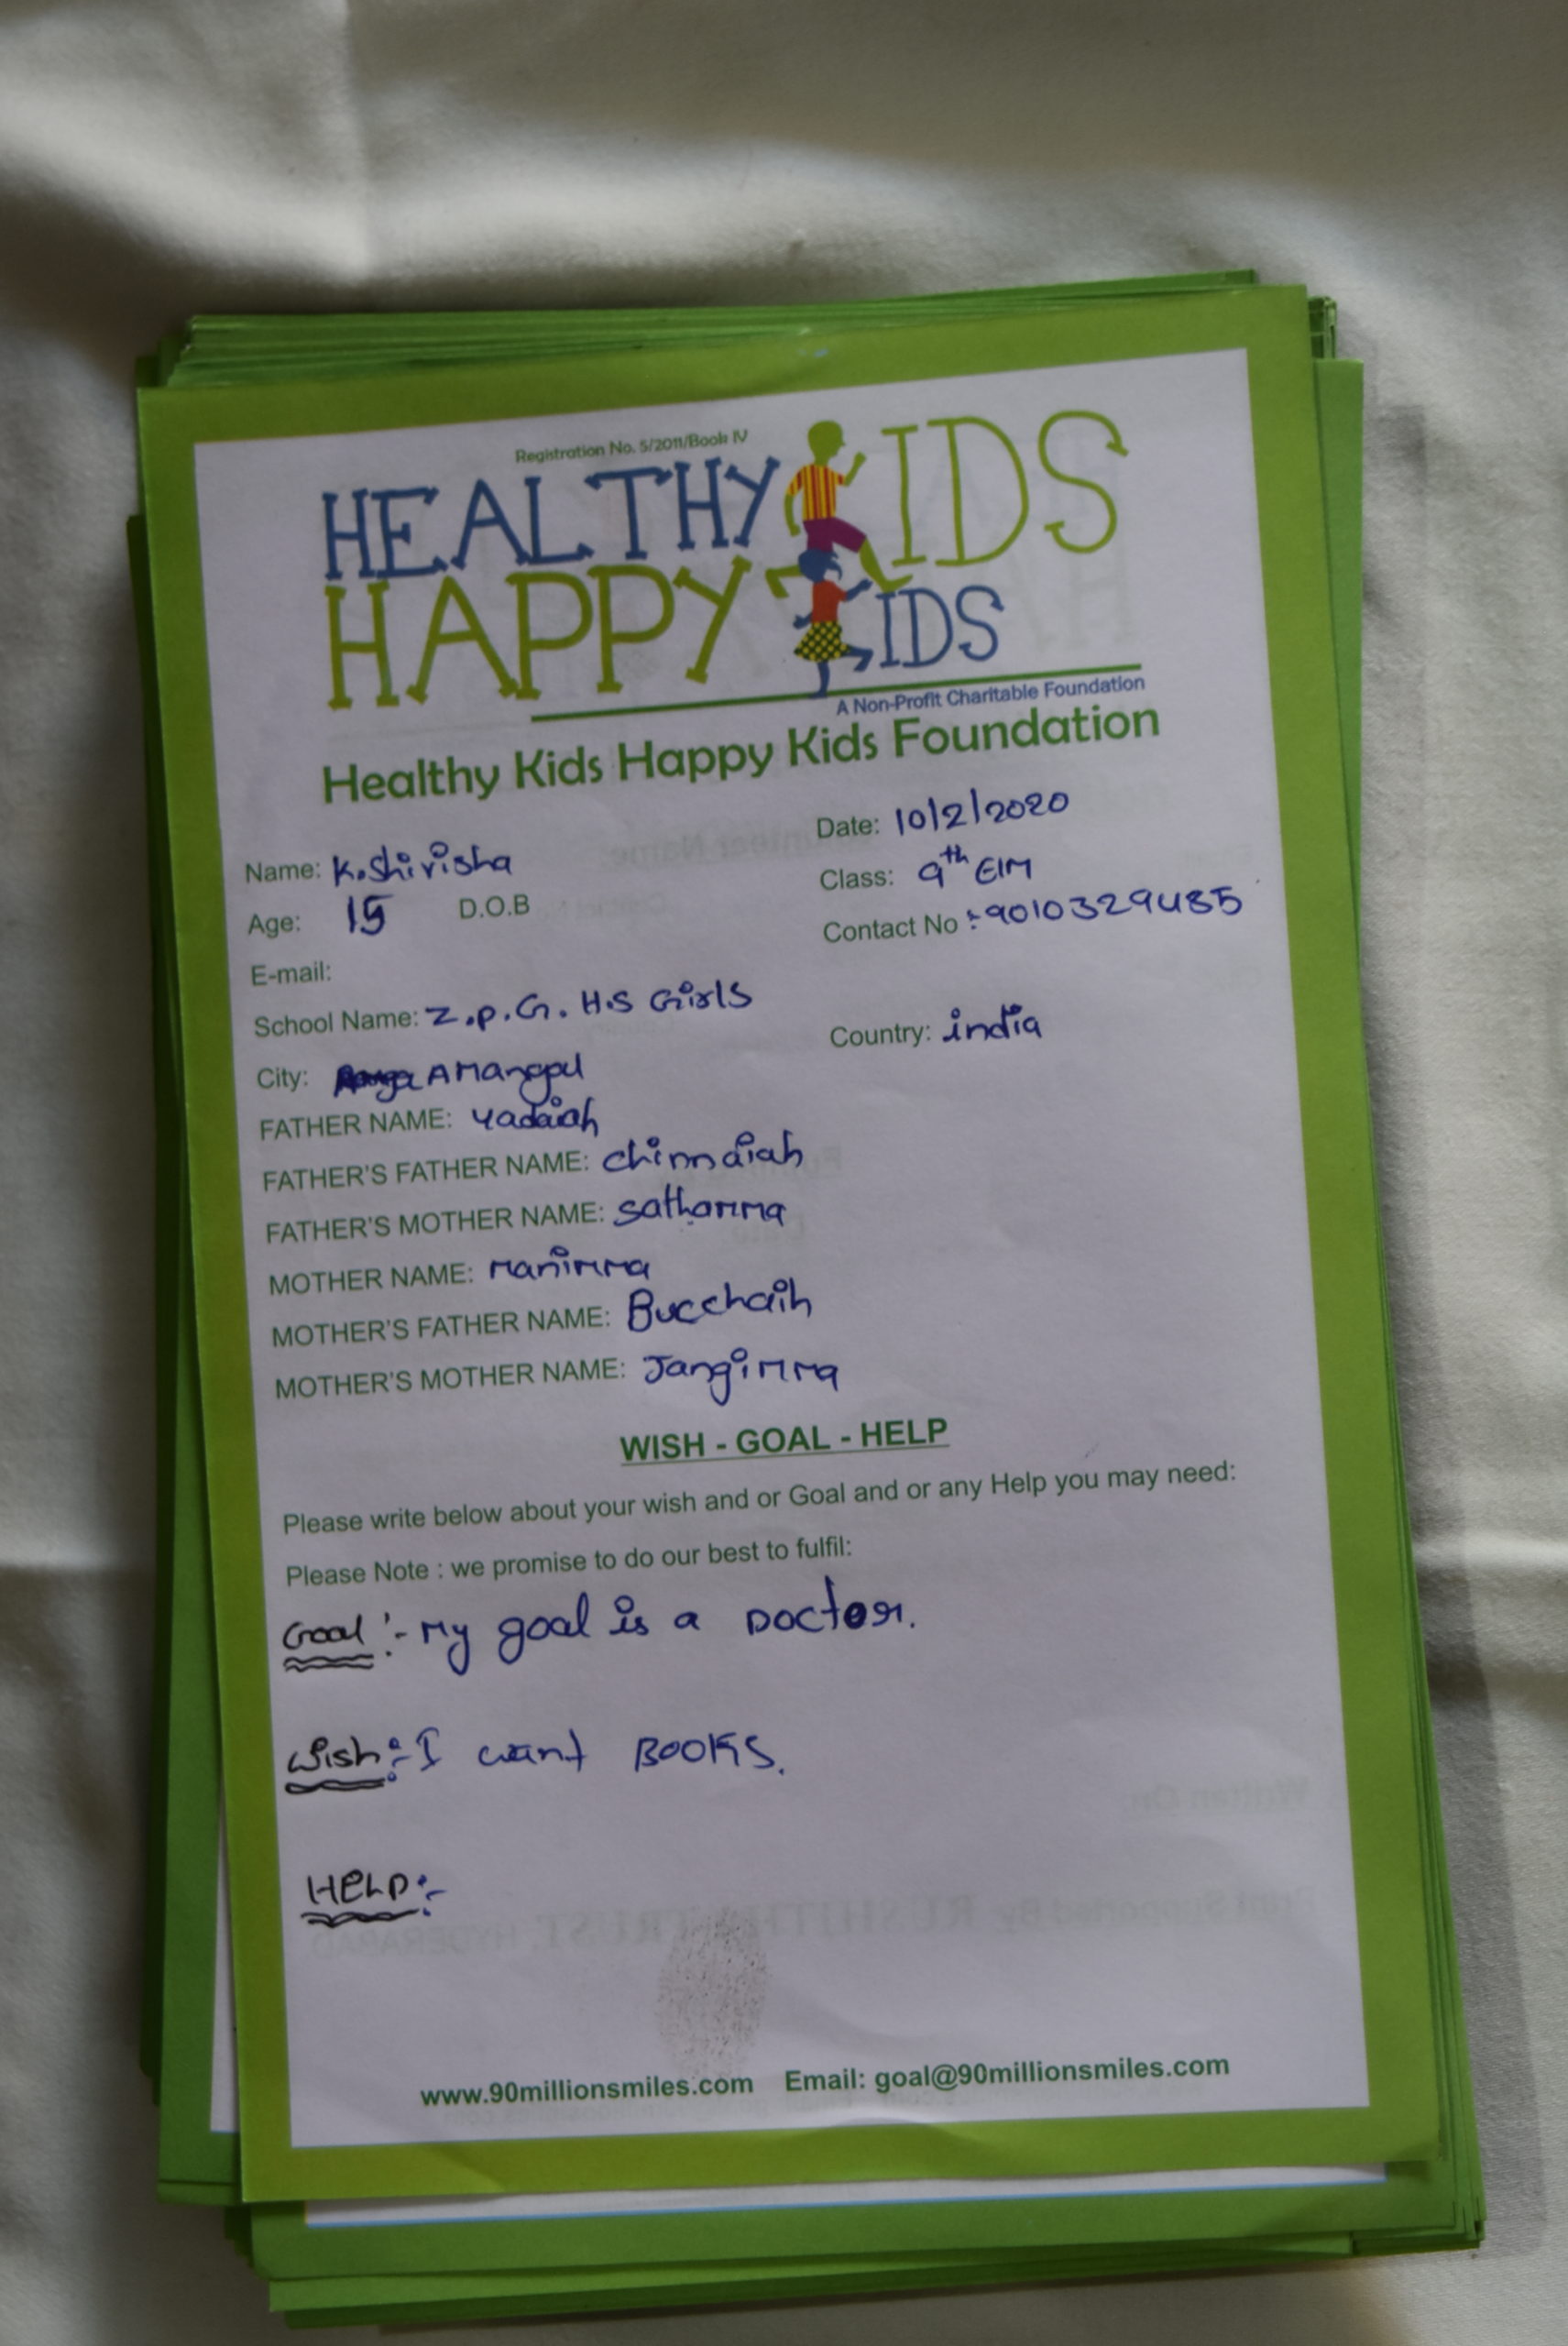 Registration No. 5/2011/Book IV
HEALTHY KIDS
HAPPY KIDS
A Non-Profit Charitable Foundation
Healthy Kids Happy Kids Foundation
Date: 10/2/2020
Name: K.Shirisha
Class: 9th E/M
Age: 15 D.O.B
Contact No :- 9010329485
E-mail:
School Name: Z.P.G. H.S Girls
Country: india
City: AMangal
FATHER NAME: Yadaiah
FATHER'S FATHER NAME: chinnaiah
FATHER'S MOTHER NAME: sathamma
MOTHER NAME: Manimma
MOTHER'S FATHER NAME: Bucchaih
MOTHER'S MOTHER NAME: Jangimma
WISH - GOAL - HELP
Please write below about your wish and or Goal and or any Help you may need:
Please Note : we promise to do our best to fulfil:
Goal :- My goal is a Doctor.
Wish :- I want BOOKS.
HELP :-
www.90millionsmiles.com Email: goal@90millionsmiles.com